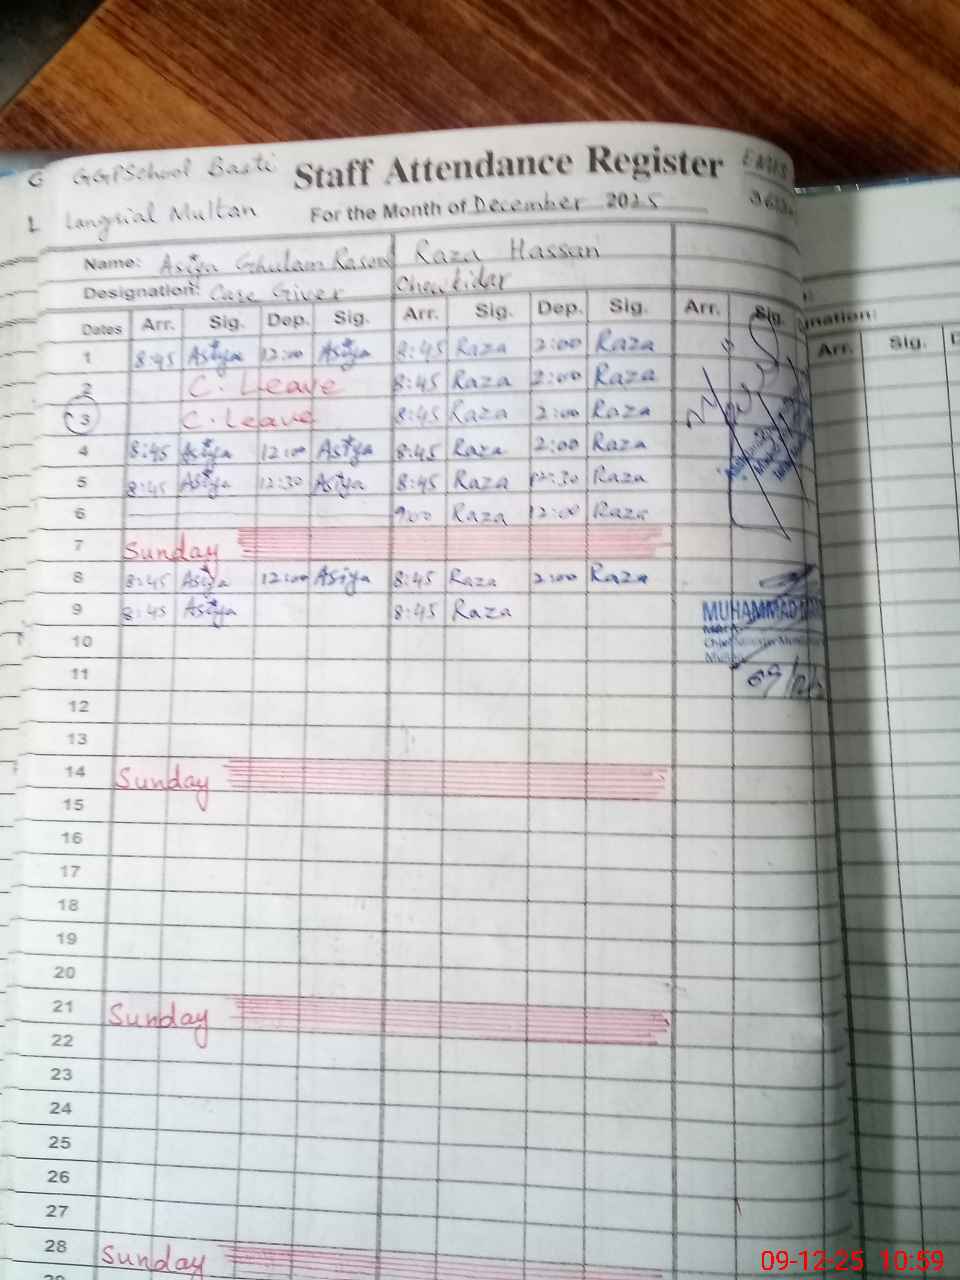 G GGPSchool Basti Staff Attendance Register EMIS
L Langrial Multan For the Month of December 2025
Name: Asiya Ghulam Rasool Raza Hassan
Designation: Care Giver Chowkidar
Dates Arr. Sig. Dep. Sig. Arr. Sig. Dep. Sig. Arr. Sig.
1 8:45 Asiya 12:00 Asiya 8:45 Raza 2:00 Raza
2 C. Leave 8:45 Raza 2:00 Raza
3 C. Leave 8:45 Raza 2:00 Raza
4 8:45 Asiya 12:00 Asiya 8:45 Raza 2:00 Raza
5 8:45 Asiya 12:30 Asiya 8:45 Raza 12:30 Raza
6 9:00 Raza 12:00 Raza
7 Sunday
8 8:45 Asiya 12:00 Asiya 8:45 Raza 2:00 Raza
9 8:45 Asiya 8:45 Raza
MUHAMMAD
10
11
12
13
14 Sunday
15
16
17
18
19
20
21 Sunday
22
23
24
25
26
27
28 Sunday
nation:
Arr. Sig.
09-12-25 10:59